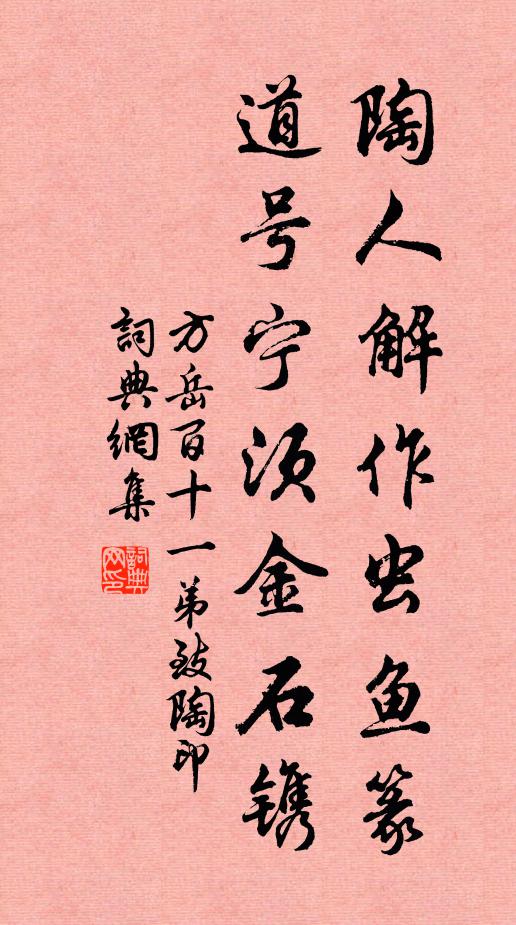 陶人解作虫鱼篆
道号宁须金石镌
方岳百十一弟致陶印
詞典網集
詞典网印